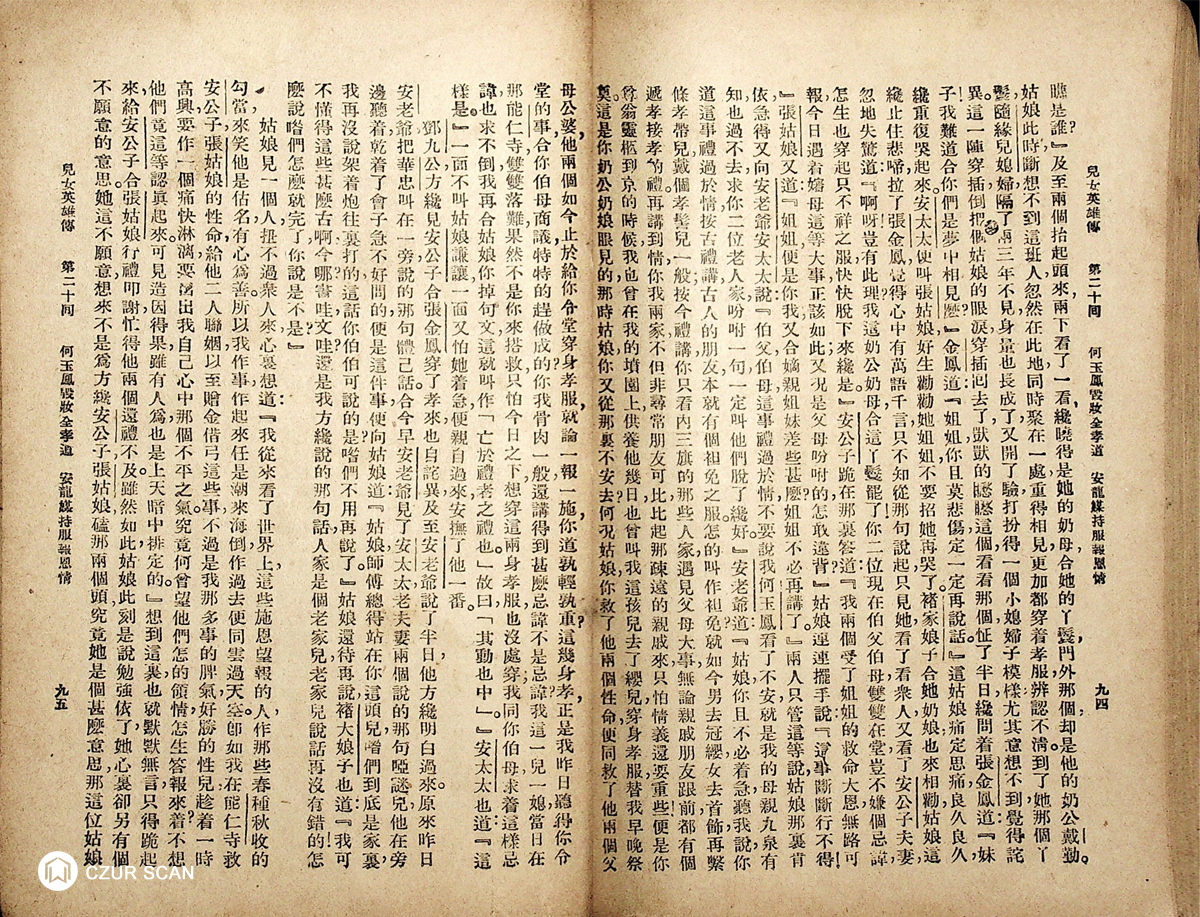 兒女英雄傳　第二十回　何玉鳳毀妝全孝道　安龍媒持服報恩情　九四
瞧是誰？』及至兩個抬起頭來，兩下看了一看，纔曉得是她的奶母合她的丫鬟，門外那個却是他的奶公戴勤。
姑娘此時斷想不到這班人忽然在此地同時聚在一處，重得相見，更加都穿着孝服，辨認不淸，到了她那個丫
鬟隨緣兒媳婦，隔了兩三年不見，身量也長成了，又開了臉，打扮得一個小媳婦子模樣，尤其意想不到，覺得詫
異。這一陣穿插，倒把個姑娘的眼淚穿插回去了，獃獃的瞧瞧這個，看看那個，怔了半日，纔問着張金鳳道：『妹
子！我難道合你們是夢中相見麽？』金鳳道：『姐姐，你且莫悲傷，定一定再說話。』這姑娘痛定思痛，良久良久，
纔重復哭起來。安太太便叫張姑娘好生勸勸她姐姐，不要招她再哭了。褚家娘子合她奶娘也來相勸，姑娘這
纔止住悲啼，拉了張金鳳，覺得心中有萬語千言，只不知從那句說起，只見她看了看衆人，又看了安公子夫妻，
忽地失驚道：『啊呀！豈有此理！我這奶公奶母合這丫鬟罷了，你二位現在伯父伯母雙雙在堂，豈不嫌個忌諱，
怎生也穿起只不祥之服，快快脫下來纔是。』安公子跪在那裏答道：『我兩個受了姐姐的救命大恩，無路可
報，今日遇着嬸母這等大事，正該如此；又況是父母吩咐的，怎敢違背。』姑娘連連擺手說：『這事斷斷行不得！
』張姑娘又道：『姐姐便是你我又合嫡親姐妹差些甚麽？姐姐不必再講了。』兩人只管這等說，姑娘那裏肯
依，急得又向安老爺安太太說：『伯父伯母這事禮過於情，不要說我何玉鳳看了不安，就是我的母親九泉有
知，也過不去，求你二位老人家吩咐一句，一定叫他們脫了纔好。』安老爺道：『姑娘你且不必着急，聽我說，你
道這事禮過於情，按古禮講，古人的朋友，本就有個袒免之服，怎的叫作袒免，就如今男去冠纓，女去首飾，再繫
條孝帶兒，戴個孝髻兒一般，按今禮講，你只看內三旗的那些人家，遇見父母大事，無論親戚朋友跟前，都有個
遞孝接孝的禮。再講到情，你我兩家不但非尋常朋友可比，比起那疎遠的親戚來，只怕情義還要重些，便是你
尊翁靈柩到京的時候，我也曾在我的墳園上供養他幾日，也曾叫我這孩兒去了纓兒，穿身孝服，替我早晚祭
奠，這是你奶公奶娘眼見的，那時姑娘你又從那裏不安去？何況姑娘你救了他兩個性命，便同救了他兩個父
母公婆，他兩個如今止於給你令堂穿身孝服，就論一報一施，你道孰輕孰重？這幾身孝，正是我昨日聽得你令
堂的事，合你伯母商議，特特的趕做成的，你我骨肉一般，還講得到甚麽忌諱不是，忌諱？我這一兒一媳，當日在
那能仁寺雙雙落難，果然不是你來搭救，只怕今日之下，想穿這兩身孝服也沒處穿，我同你伯母求着這樣忌
諱也求不倒，我再合姑娘你掉句文，這就叫作「亡於禮者之禮也。」故曰：「其動也中。」』安太太也道：『這
樣是。』一面不叫姑娘謙讓，一面又怕她着急，便親自過來安撫了他一番。
鄧九公方纔見安公子合張金鳳穿了孝來，也自詫異，及至安老爺說了半日，他方纔明白過來。原來昨日
安老爺把華忠叫在一旁說的那句體己話，合今早安老爺見了安太太老夫妻兩個說的那句啞謎兒，他在旁
邊聽着，乾着了會子急，不好問的，便是這件事，便向姑娘道：『姑娘師傅總得站在你這頭兒，喒們到底是家裏，
我再沒說架着炮往裏打的，這話你伯伯可說的是，喒們不用再說了。』姑娘還待再說，褚大娘子也道：『我可
不懂得這些甚麽古啊今哪，書哇文哇，還是我方纔說的那句話，人家是個老家兒，老家兒說話再沒有錯的，怎
麽說喒們怎麽就完了，你說是不是？』
姑娘見一個人扭不過衆人來，心裏想道：『我從來看了世界上這些施恩望報的人，作那些春種秋收的
勾當，來笑他是估名有心爲善，所以我作事作起來任是潮來海倒，作過去便同雲過天空，卽如我在能仁寺救
安公子張姑娘的性命，給他二人聯姻，以至贈金借弓這些事，不過是我那多事的脾氣，好勝的性兒，趁着一時
高興，要作一個痛快淋漓，要出出我自己心中那個不平之氣，究竟何曾望他們怎的領情，怎生答報來着？不想
他們竟這等認眞起來，可見造因得果，雖有人爲，也是上天暗中排定的。』想到這裏，也就默默無言，只得跪起
來，給安公子合張姑娘行禮叩謝，忙得他兩個還禮不及。雖然如此，姑娘此刻是說勉強依了，她心裏卻另有個
不願意的意思，她這不願意，想來不是爲方纔安公子張姑娘磕那兩個頭，究竟她是個甚麽意思，那這位姑娘
兒女英雄傳　第二十回　何玉鳳毀妝全孝道　安龍媒持服報恩情　九五
CZUR SCAN